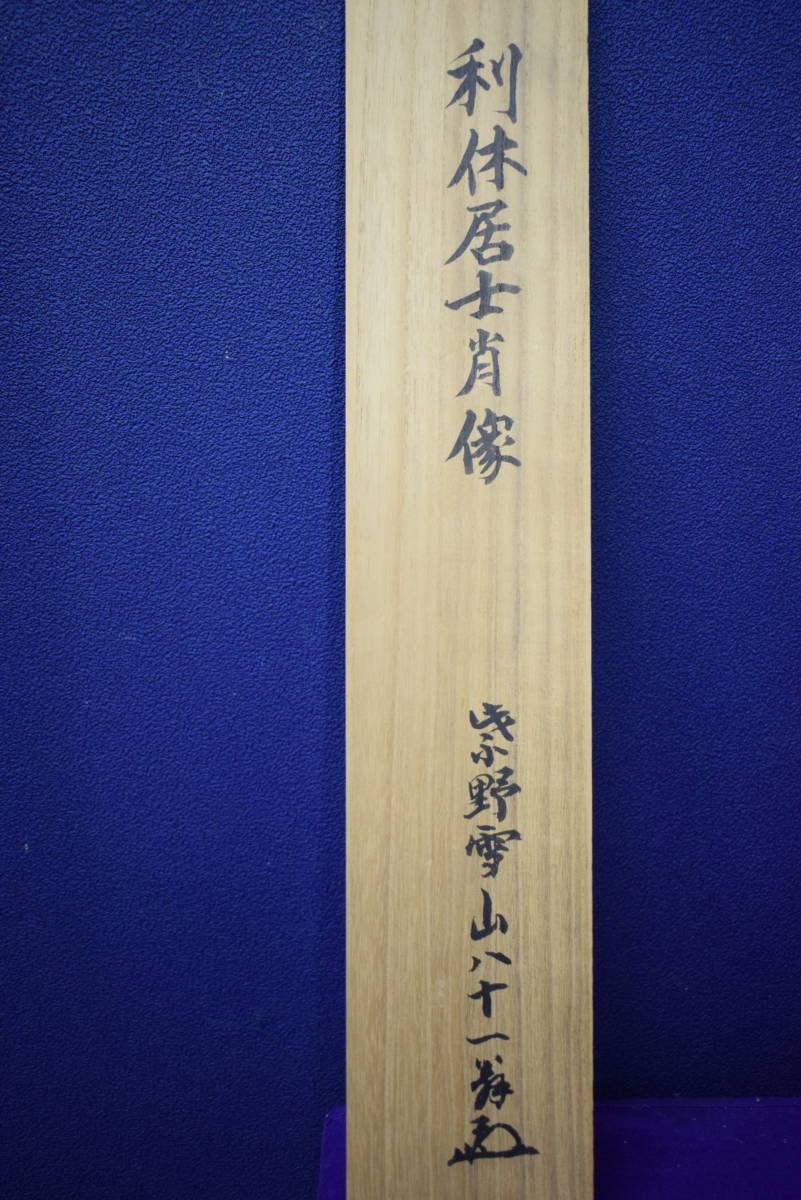 利休居士肖像
紫野雪山八十一翁